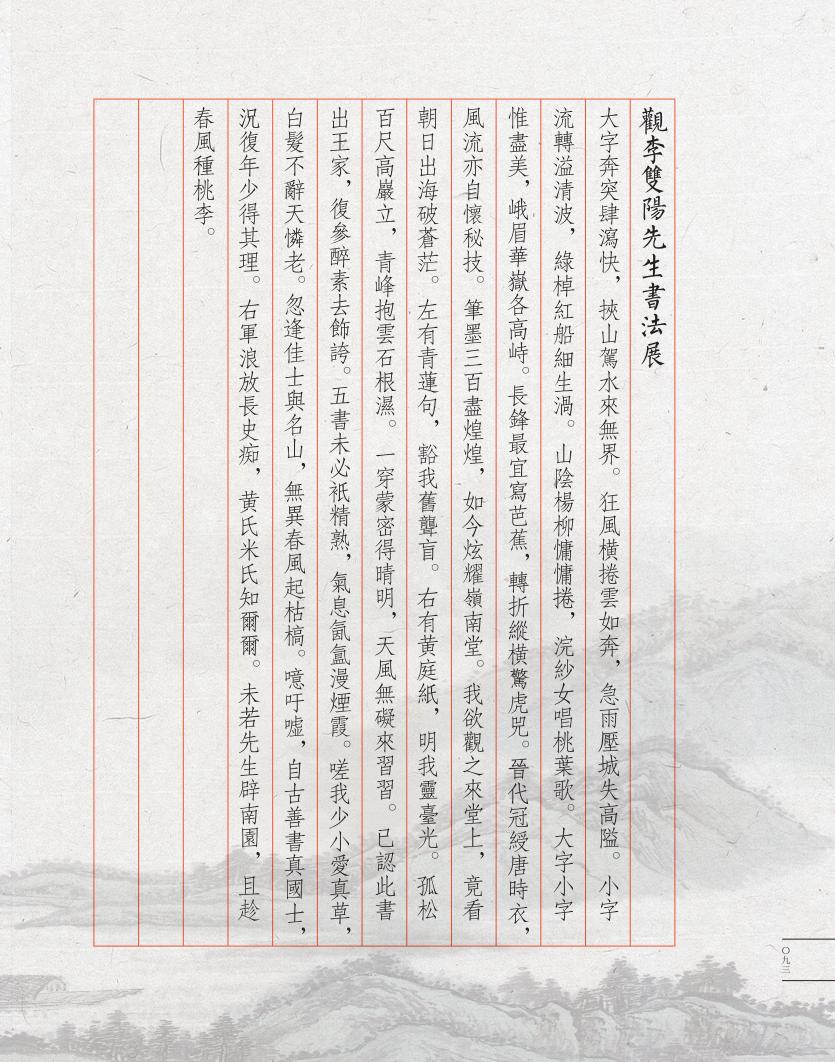 觀李雙陽先生書法展
大字奔突肆瀉快，挾山駕水來無界。狂風橫捲雲如奔，急雨壓城失高隘。小字
流轉溢清波，綠棹紅船細生渦。山陰楊柳慵慵捲，浣紗女唱桃葉歌。大字小字
惟盡美，峨眉華嶽各高峙。長鋒最宜寫芭蕉，轉折縱橫驚虎兕。晉代冠綬唐時衣，
風流亦自懷秘技。筆墨三百盡煌煌，如今炫耀嶺南堂。我欲觀之來堂上，竟看
朝日出海破蒼茫。左有青蓮句，豁我舊聾盲。右有黃庭紙，明我靈臺光。孤松
百尺高巖立，青峰抱雲石根濕。一穿蒙密得晴明，天風無礙來習習。已認此書
出王家，復參醉素去飾誇。五書未必衹精熟，氣息氤氳漫煙霞。嗟我少小愛真草，
白髮不辭天憐老。忽逢佳士與名山，無異春風起枯槁。噫吁嘘，自古善書真國士，
況復年少得其理。右軍浪放長史痴，黃氏米氏知爾爾。未若先生辟南園，且趁
春風種桃李。
〇九三